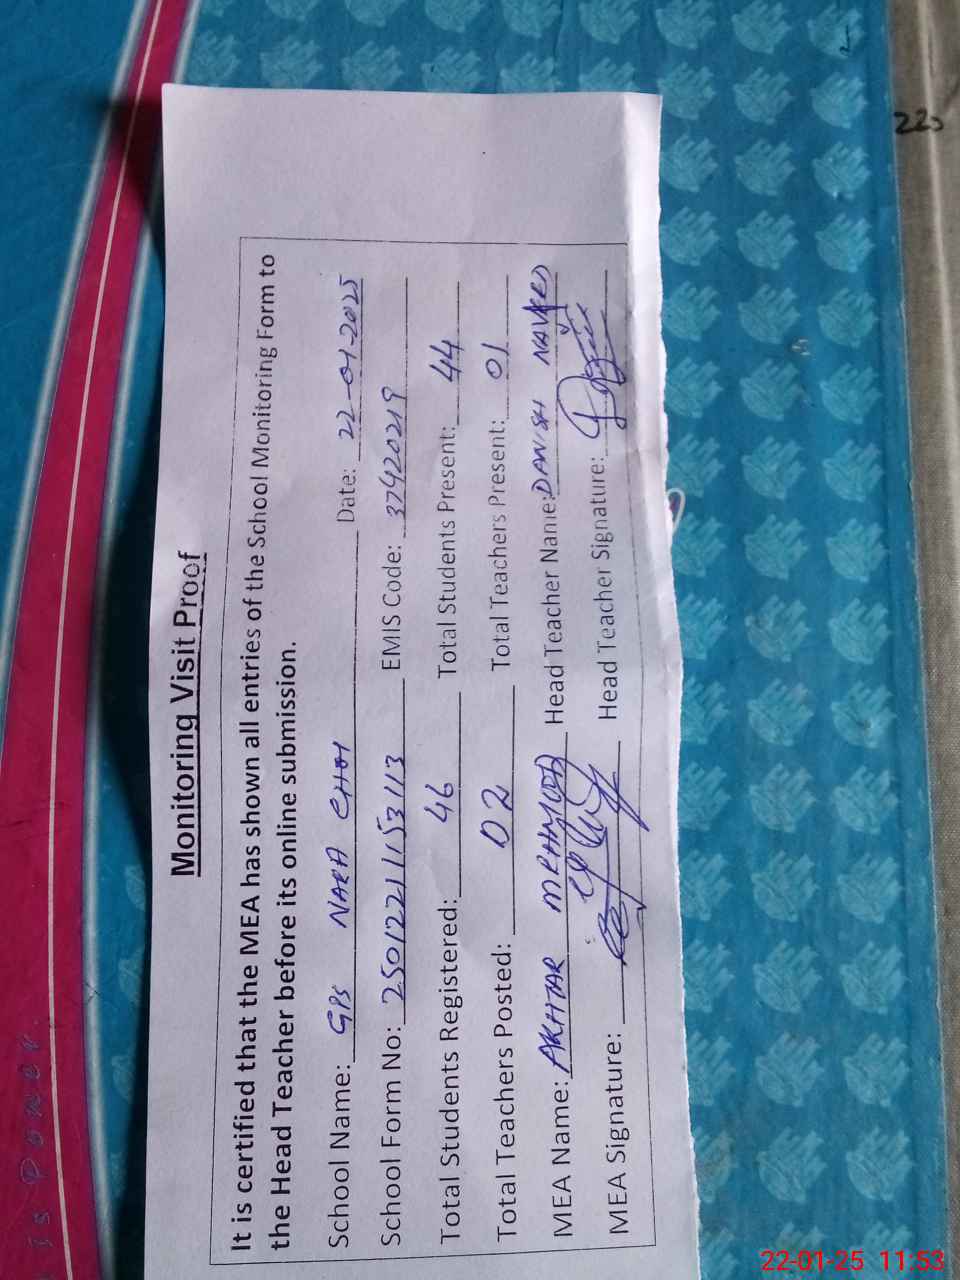 Monitoring Visit Proof
It is certified that the MEA has shown all entries of the School Monitoring Form to
the Head Teacher before its online submission.
School Name: GPS NARA Date: 22-01-2025
School Form No: 25012211153113 EMIS Code: 37420219
Total Students Registered: 46 Total Students Present: 44
Total Teachers Posted: 02 Total Teachers Present: 01
MEA Name: AKHTAR MEHMOOD Head Teacher Name: DANISH NAVEED
MEA Signature: Head Teacher Signature:
is Power.
225
22-01-25 11:53